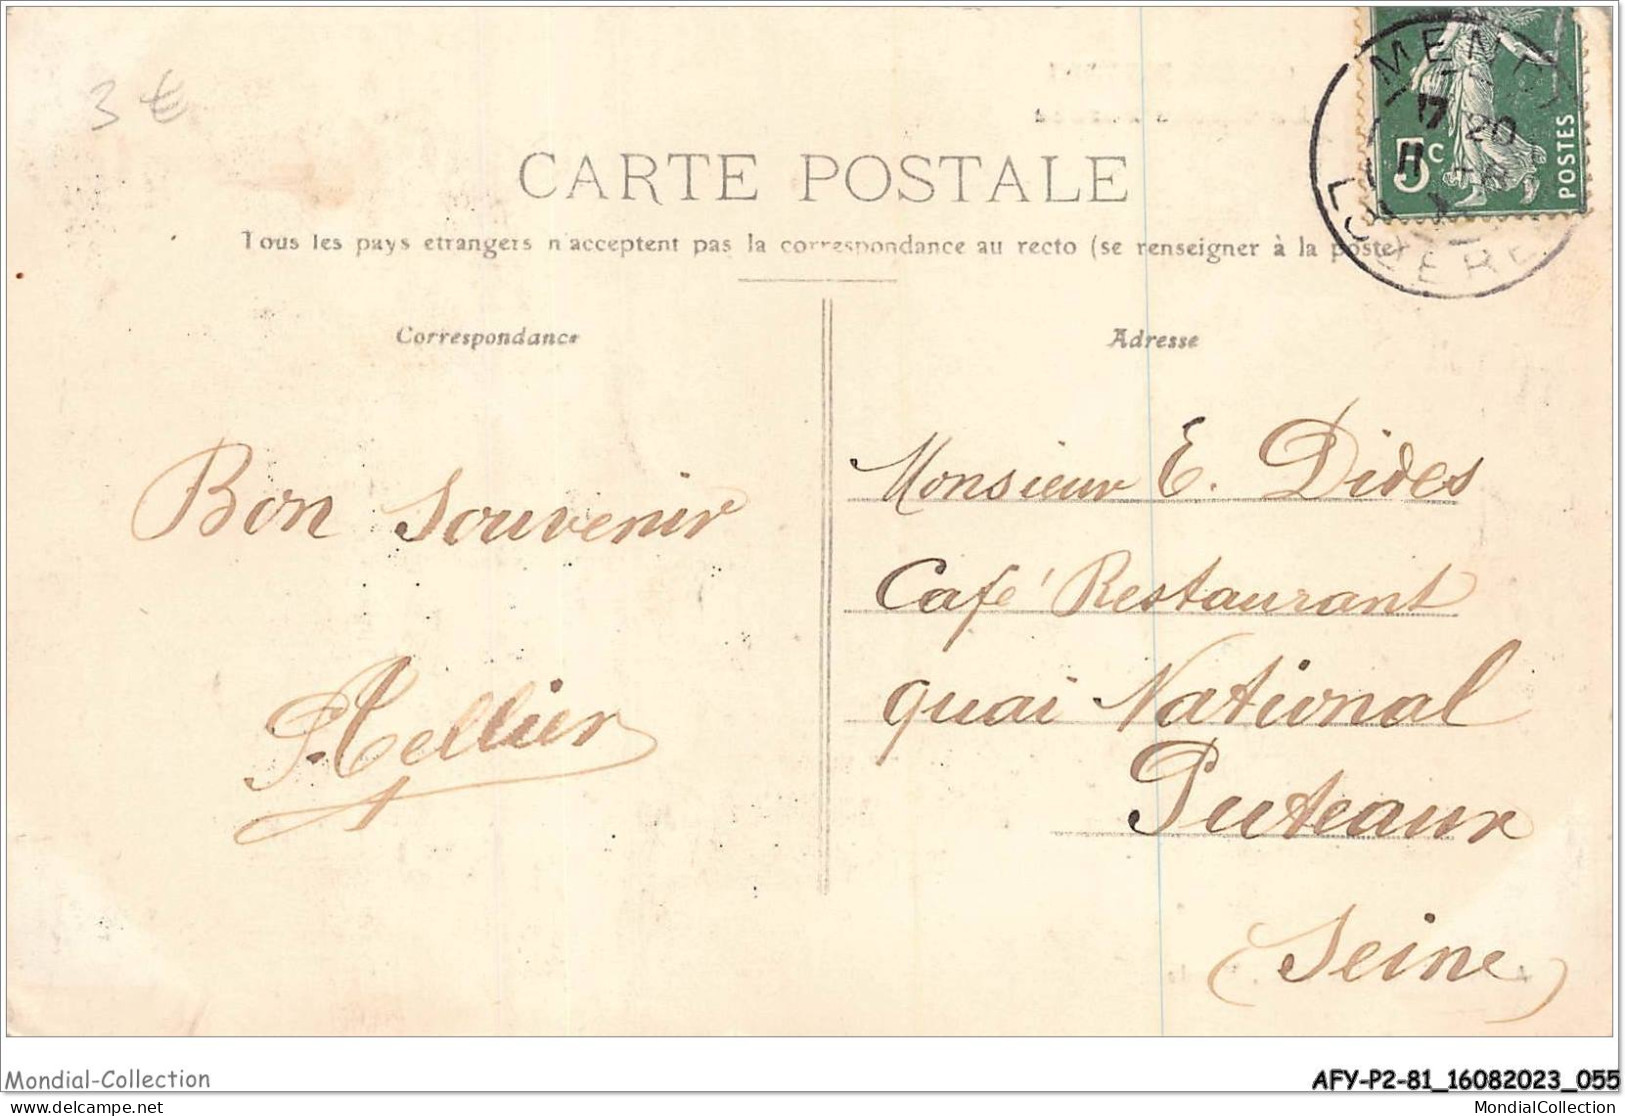 3 €
MENDE
17 20
11
LOZERE
5c
POSTES
CARTE POSTALE
Tous les pays etrangers n'acceptent pas la correspondance au recto (se renseigner à la poste)
Correspondance
Adresse
Bon Souvenir
Hellier
Monsieur E. Dides
Café Restaurant
quai National
Puteaux
(Seine)
Mondial-Collection
AFY-P2-81_16082023_055
www.delcampe.net
MondialCollection